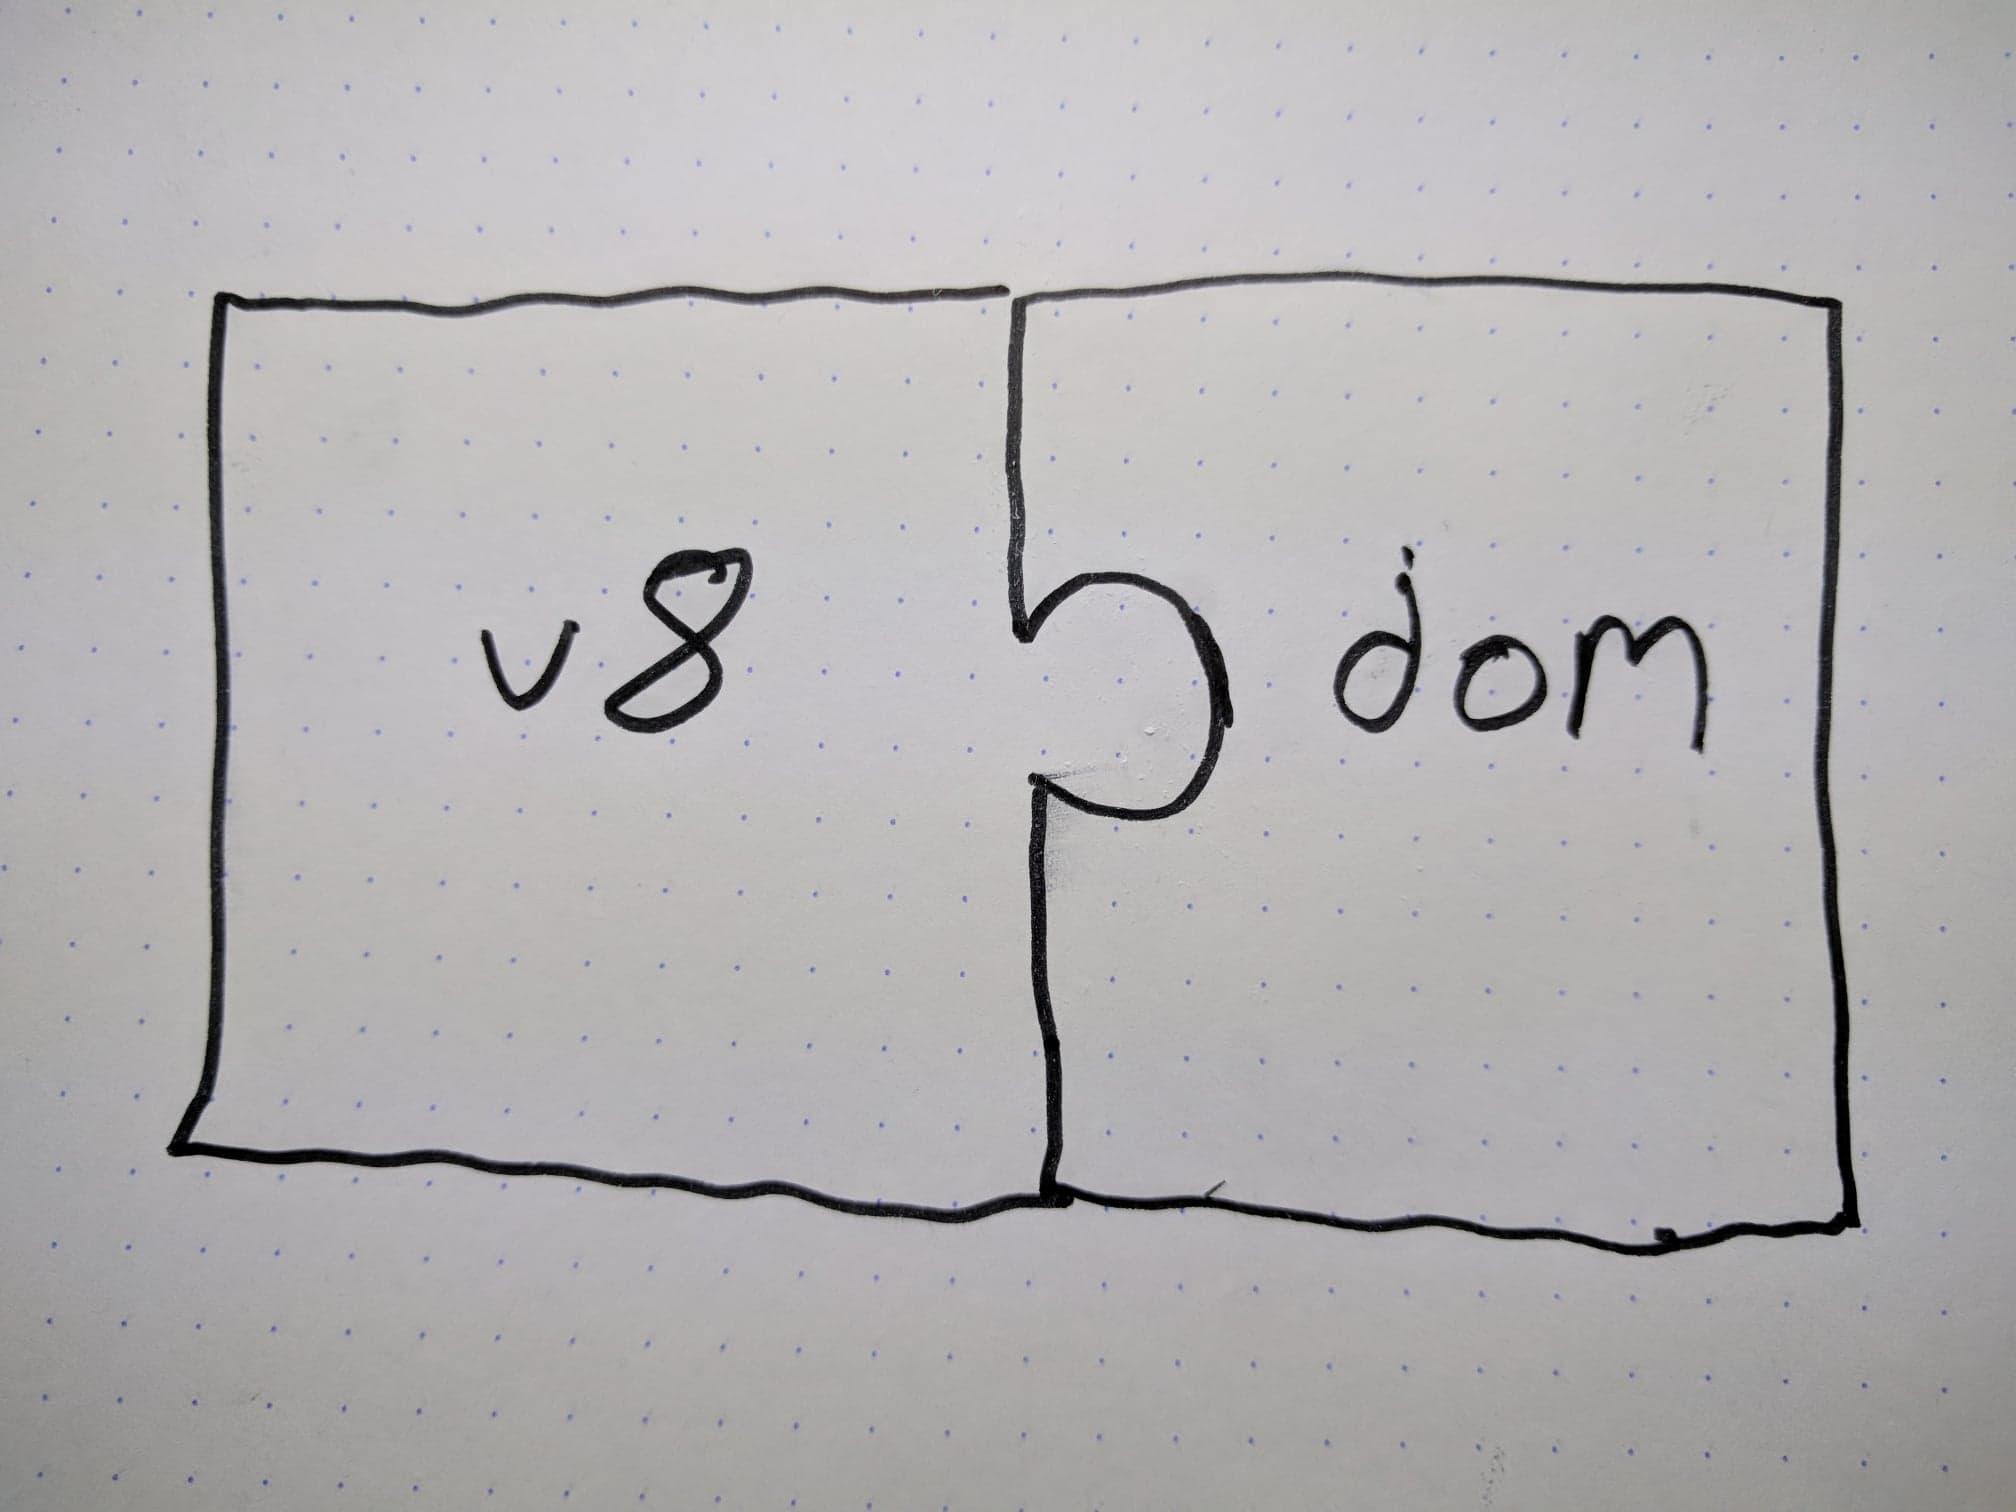 v8
dom